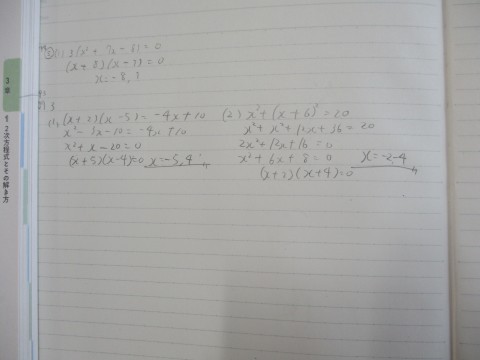 3章
1 2次方程式とその解き方
(x+8)(x-1)=0
x=-8,1
(1) (x+2)(x-5)=-4x+10
x²-3x-10=-4x+10
x²+x-20=0
(x+5)(x-4)=0 x=-5,4
(2) x²+(x+6)²=20
x²+x²+12x+36=20
2x²+12x+16=0
x²+6x+8=0 x=-2,-4
(x+2)(x+4)=0